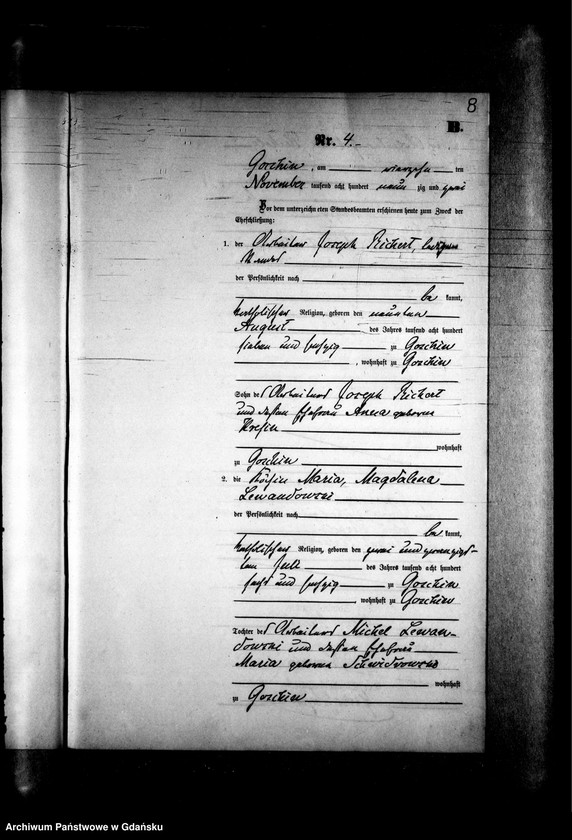 8
B.
Nr. 4.
Goschin, am vierzehn ten
November tausend acht hundert neun zig und zwei
Vor dem unterzeichneten Standesbeamten erschienen heute zum Zweck der
Eheschließung:
1. der Arbeiter Joseph Richert, ledigen
Standes
der Persönlichkeit nach
be kannt,
katholischer Religion, geboren den neunten
August des Jahres tausend acht hundert
sieben und sechzig zu Goschin
, wohnhaft zu Goschin
Sohn des Arbeiters Joseph Richert
und dessen Ehefrau Anna geborene
wohnhaft
zu Goschin
2. die Köchin Maria, Magdalena
Lewandowski
der Persönlichkeit nach
be kannt,
katholischer Religion, geboren den zwei und zwanzigs-
ten Juli des Jahres tausend acht hundert
sechs und sechzig zu Goschin
, wohnhaft zu Goschin
Tochter des Arbeiters Michel Lewan-
dowski und dessen Ehefrau
Maria geborene
wohnhaft
zu Goschin
Archiwum Państwowe w Gdańsku